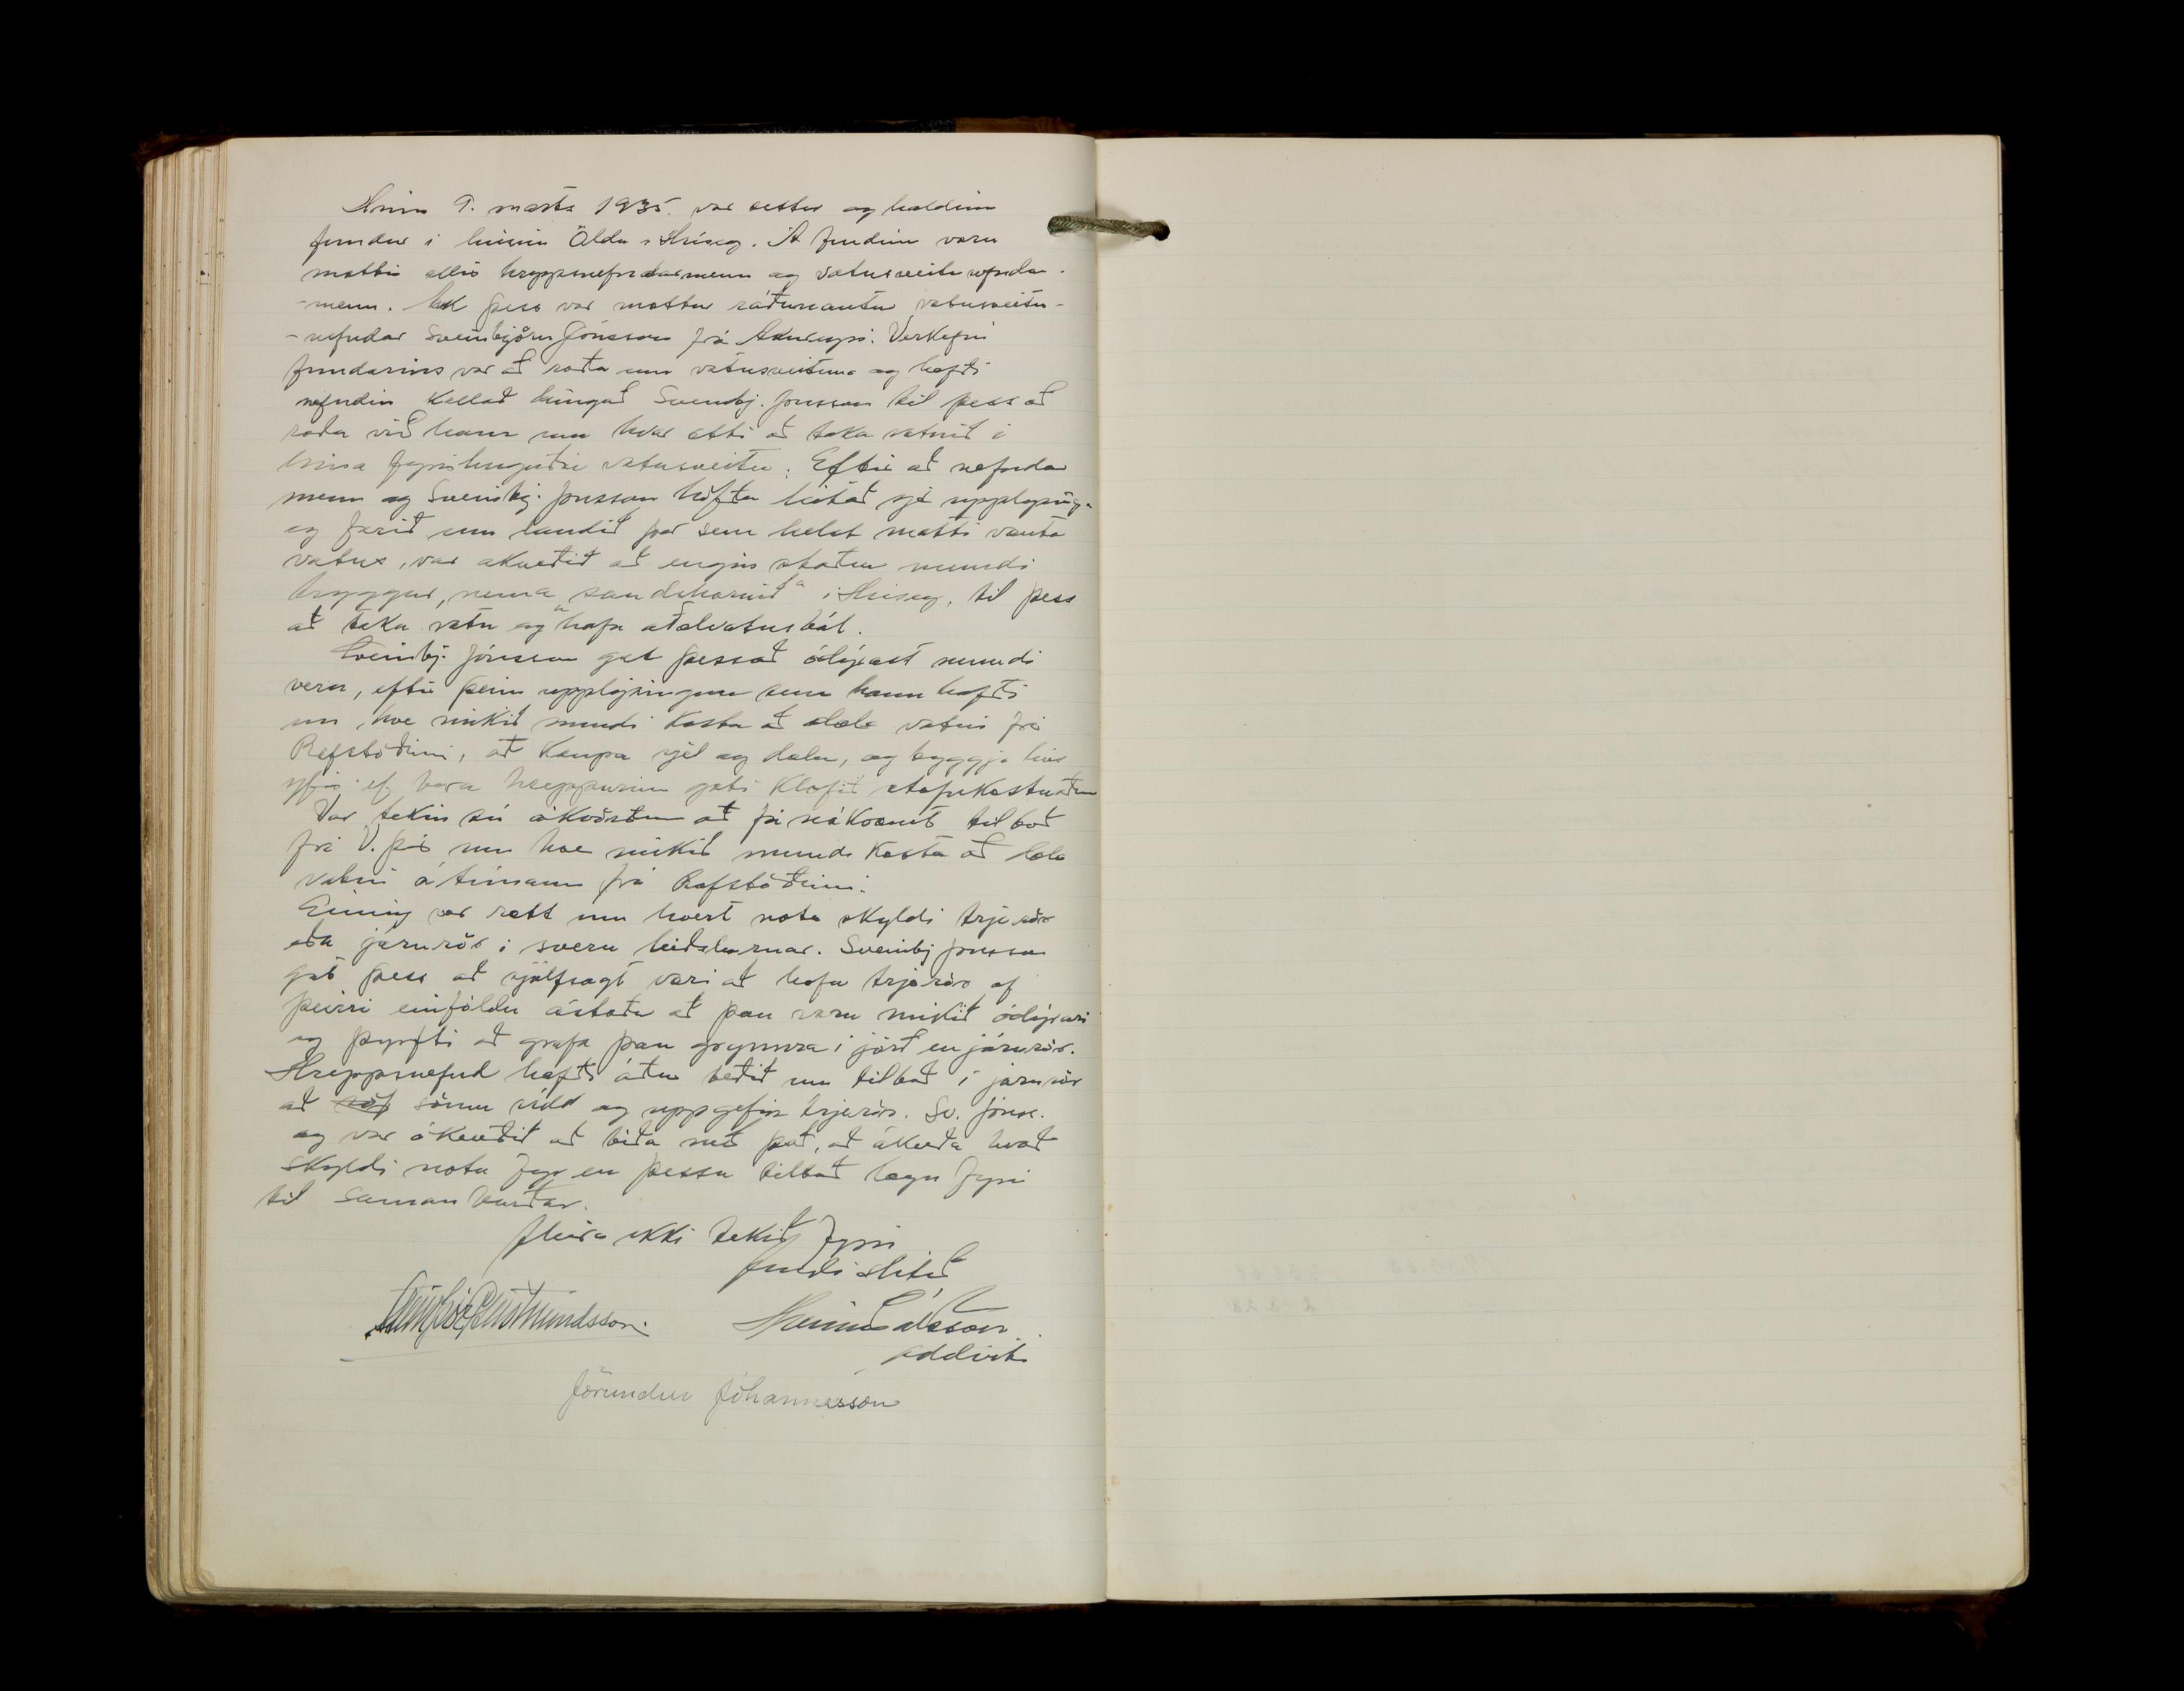 Hinn 9. marts 1935. var settur og haldinn
fundur í húsinu Öldu í Hrísey. Á fundinn voru
mættir allir hreppsnefndarmenn og vatnsveitunefnda-
-menn. Auk þess var mættur ráðunautur vatnsveitu-
-nefndar Sveinbjörn Jónsson frá Akureyri. Verkefni
fundarins var að ræða um vatnsveituna og hafði
nefndin kallað hingað Sveinbj. Jónsson til þess að
ræða við hann um hvar ætti að taka vatnið í
hina fyrirhuguðu vatnsveitu. Eftir að nefndar
menn og Sveinbj. Jónsson höfðu leitað sjer upplýsinga
og farið um landið þar sem helst mætti vænta
vatns, var akveðið að engin staður mundi
tryggur, nema "sandhornið" í Hrísey, til þess
að taka vatn og hafa aðalvatnsból.
Sveinbj. Jónsson gat þess að ódýrast mundi
vera, eftir þeim upplýsingum sem hann hafði
um hve mikið mundi kosta að dæla vatni frá
Rafstöðinni, að kaupa vjel og dælu, og byggja hús
yfir ef bara hreppurinn gæti klofið stofnkostnaðinn
Var tekin sú ákvörðun að fá nákvæmt tilboð
frá V. Þór um hve mikið mundi kosta að dæla
vatni á tímann frá Rafstöðinni.
Einnig var rætt um hvert nota skyldi trjerör
eða járnrör í sveru leiðslurnar. Sveinbj Jónsson
gat þess að sjálfsagt væri að hafa trjerör af
þeirri einföldu ástæðu að þau væru mikið ódýrari
og þyrfti að grafa þau grynnra í jörð en járnrör.
Hreppsnefnd hafði áður beðið um tilboð í járnrör
að sömu vídd og uppgefin trjerör. Sv. Jónss.
og var ákveðið að bíða með það, að ákveða hvað
skyldi nota fyr en þessu tilboð lægu fyrir
til samanburðar.
Fleira ekki tekið fyrir
fundi slitið
Hreinn Pálsson
oddviti
Jörundur Jóhannesson